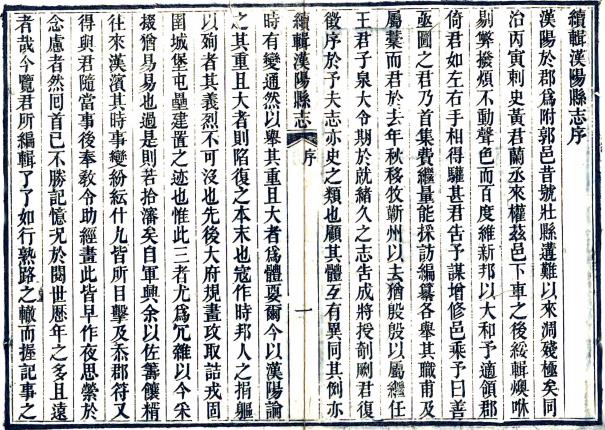 續輯漢陽縣志序
漢陽於郡爲附郭邑昔號壯縣遘難以來凋殘極矣同
治丙寅刺史黃君蘭丞來權茲邑下車之後綏輯燠咻
剔弊撥煩不動聲色而百度維新邦以大和予適領郡
倚君如左右手相得驩甚君告予謀增修邑乘予曰善
亟圖之君乃首集費繼量能採訪編纂各舉其職甫及
屬藁而君於去年秋移牧蘄州以去猶殷殷以屬繼任
王君子泉大令期於就緒久之志告成將授剞劂君復
徵序於予夫志亦史之類也顧其體互有異同其例亦
續輯漢陽縣志 序 一
時有變通然以舉其重且大者爲體要爾今以漢陽論
之其重且大者則陷復之本末也寇作時邦人之捐軀
以殉者其義烈不可沒也先後大府規畫攻取詰戎固
圉城堡屯壘建置之迹也惟此三者尤爲宂雜以今采
掇猶易易也過是則若拾瀋矣自軍興余以佐籌饟糈
往來漢濱其時事變紛紜什九皆所目擊及忝郡符又
得與君隨當事後奉敎令助經畫此皆早作夜思縈於
念慮者然囘首已不勝記憶况於閱世歷年之多且遠
者哉今覽君所編輯了了如行熟路之轍而握記事之